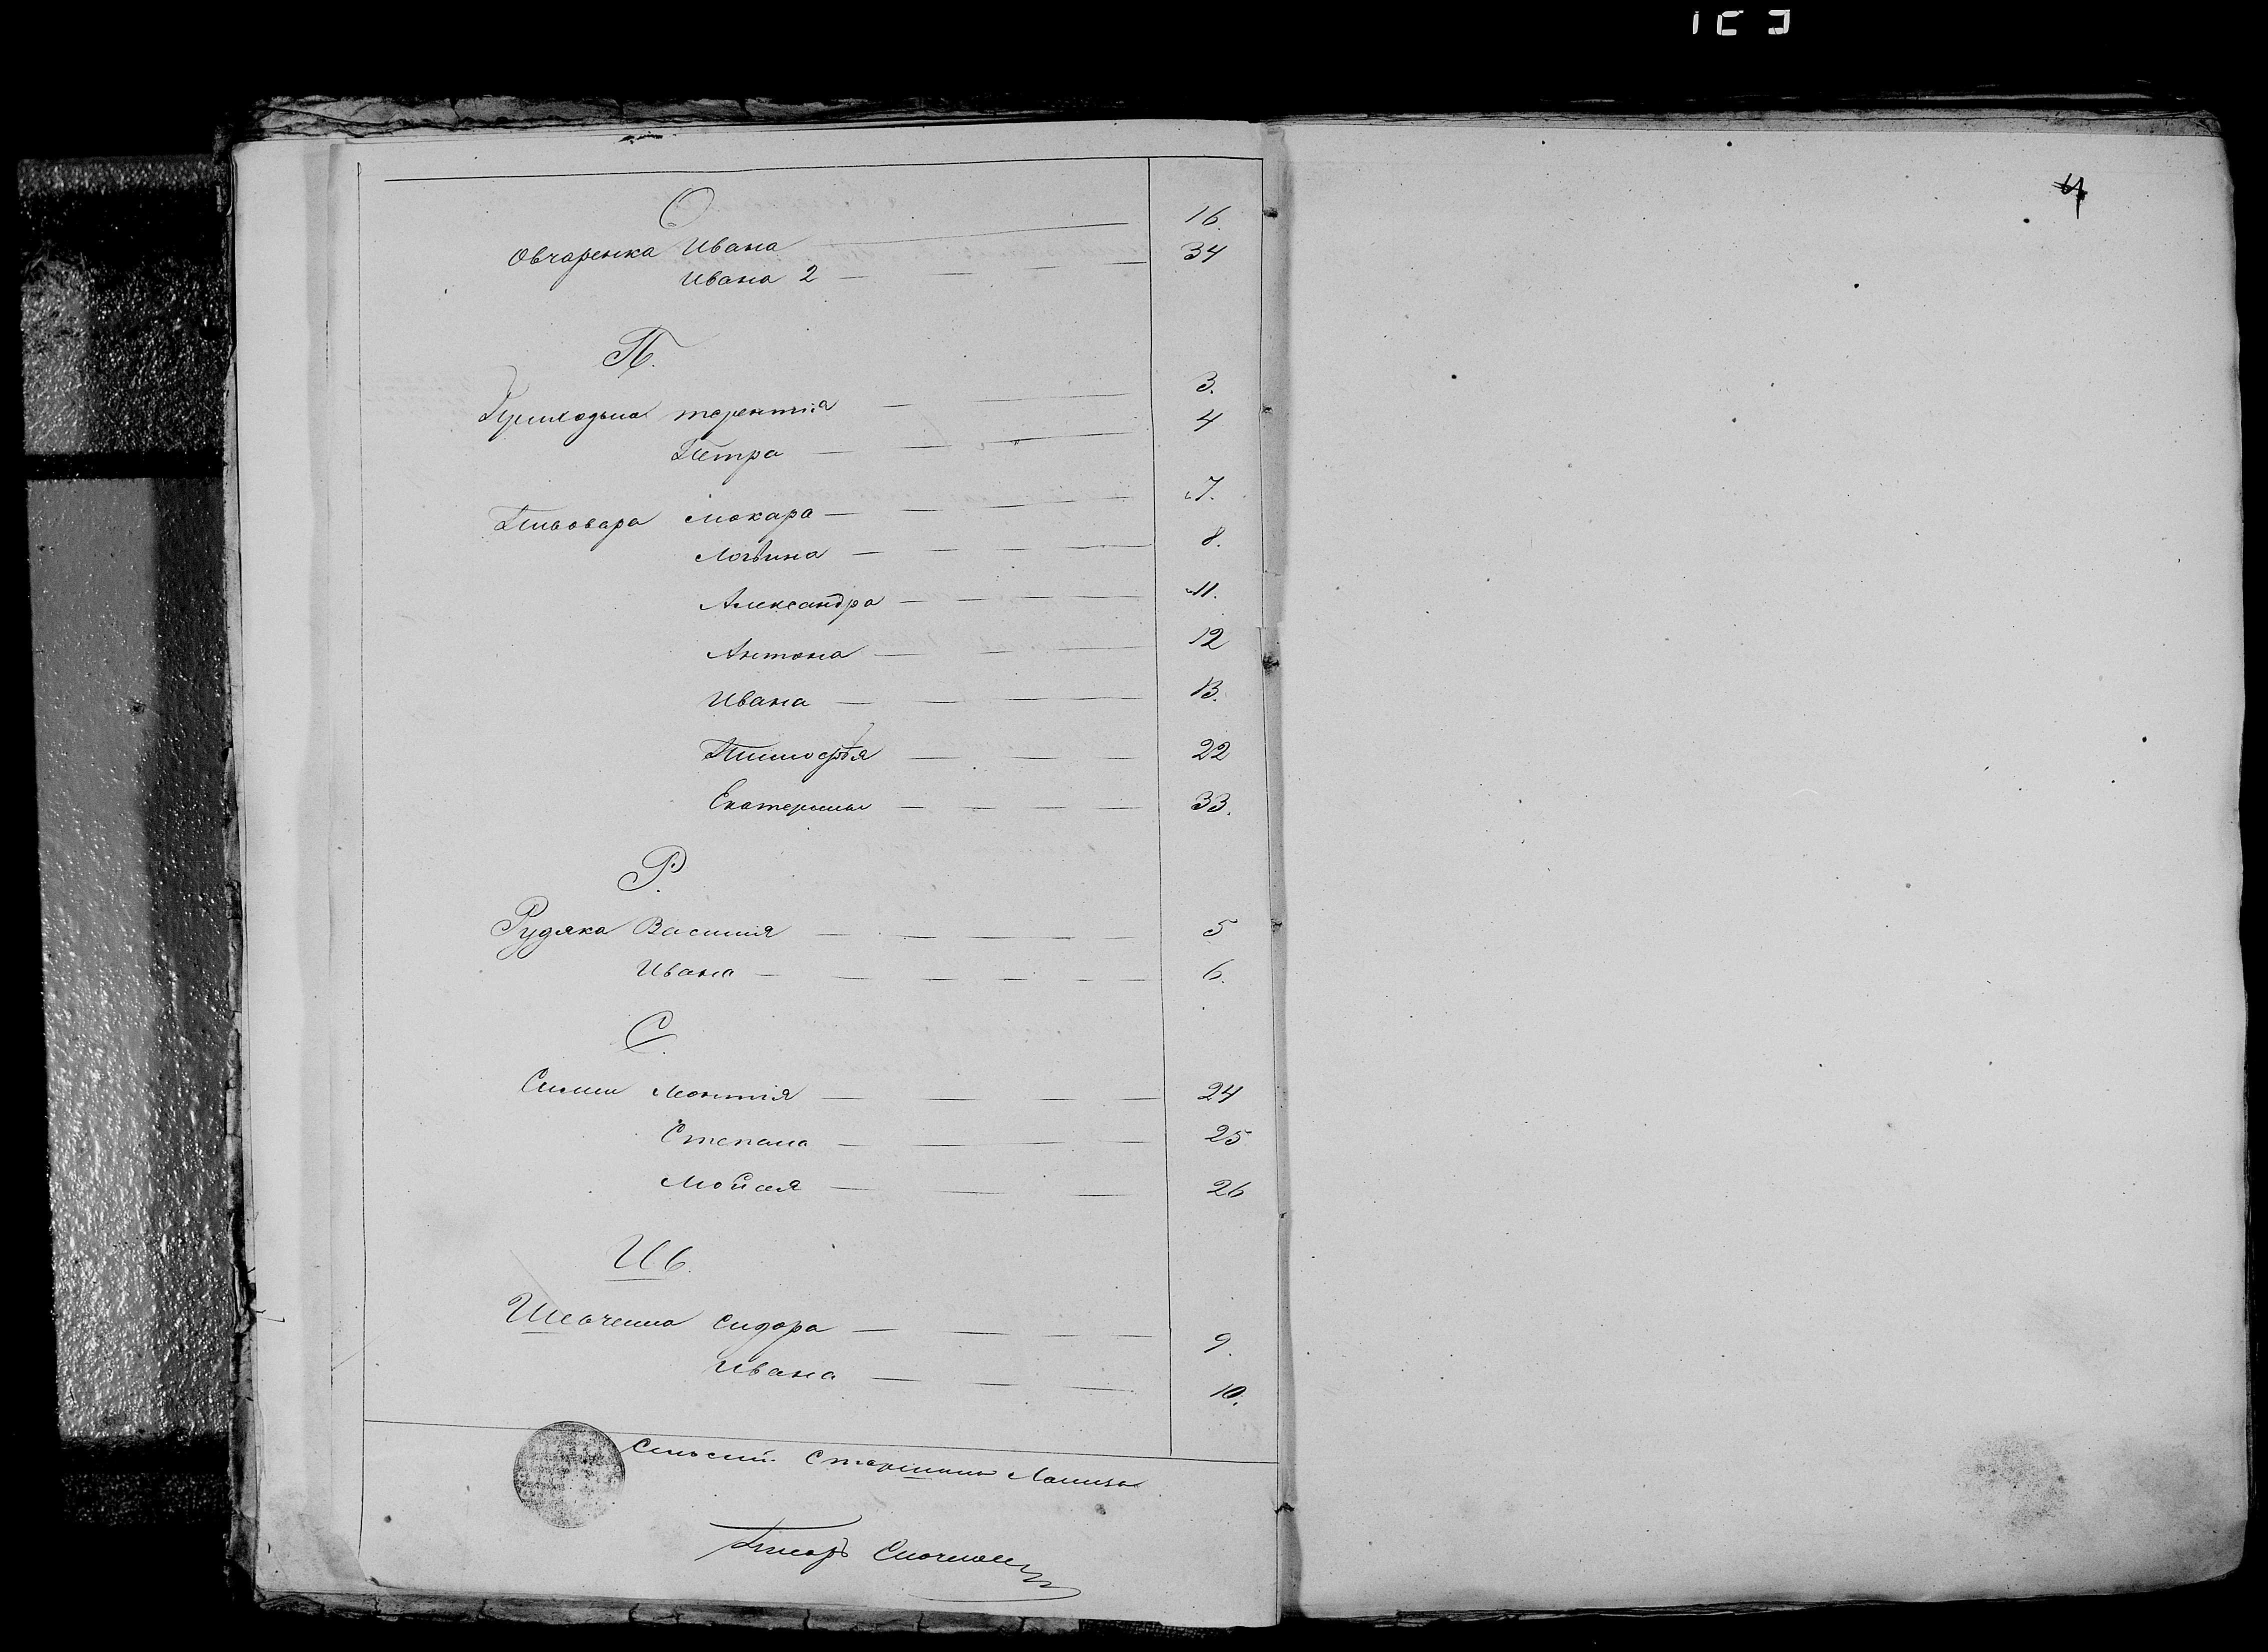 О
Овчаренка Ивана 16.
Ивана 2 34
П.
Приходька терентия 3.
Петра 4
Пивовара Макара 7.
Логвина 8.
Александра 11.
Антона 12
Ивана 13.
Тимофѣя 22
Екатерины 33.
Р.
Рудяка Василия 5
Ивана 6.
С.
Силки 24
Степана 25
Мойсея 26
Ш.
Шевченка Сидора 9.
Ивана 10.
Сельский Старшина
Писарь
4